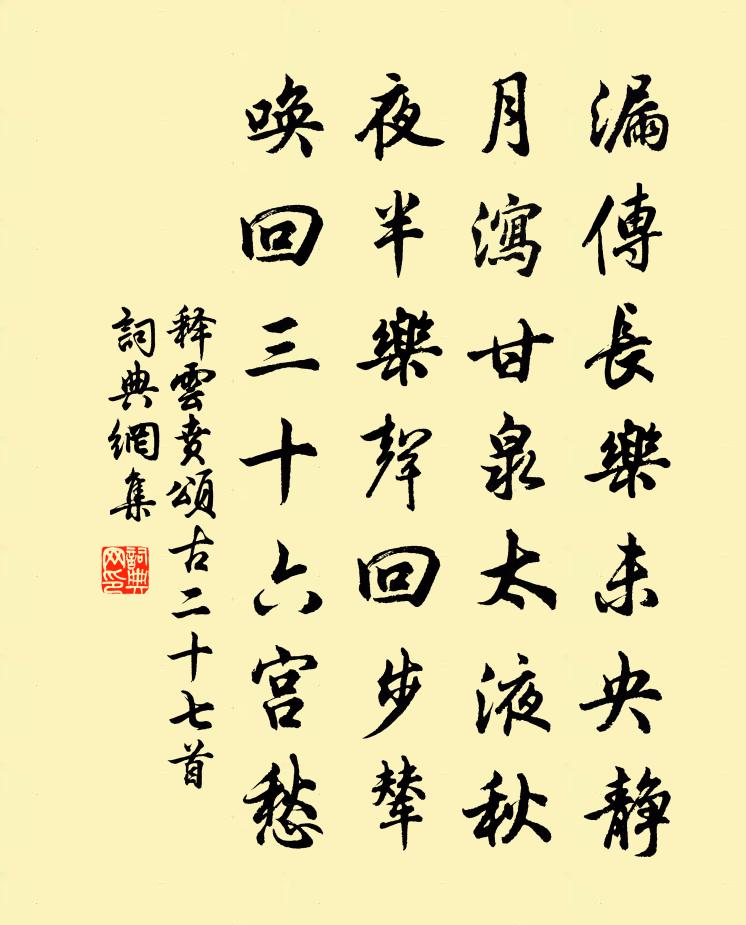 漏傳長樂未央靜
月瀉甘泉太液秋
夜半樂聲回步輦
喚回三十六宮愁
释雲賁頌古二十七首
詞典網集
詞典網印